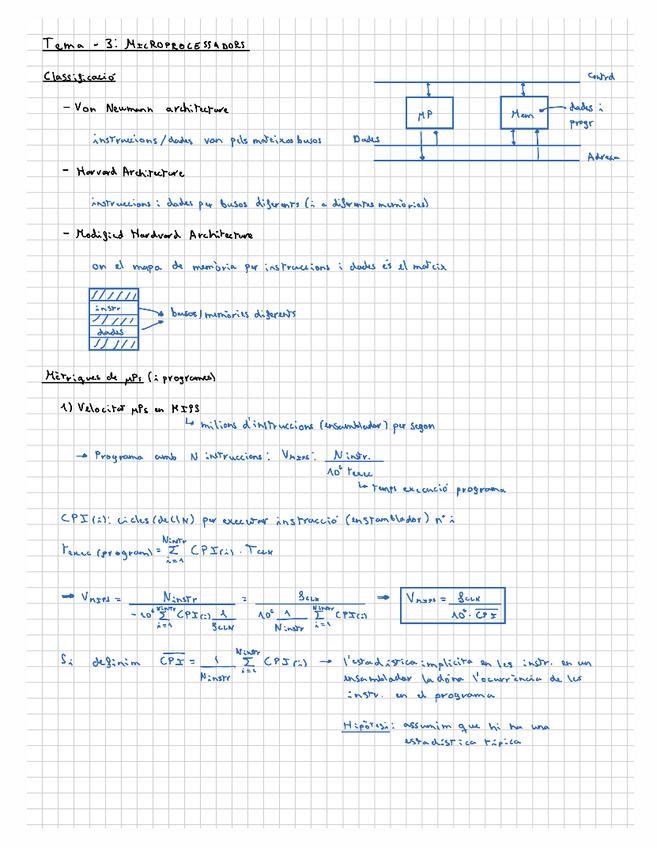 Tema - 3: MICROPROCESSADORS
Classificació
- Von Newmann architecture
instruccions/dades van pels mateixos busos
Control
μP
Mem
dades i
progr
Dades
Adreces
- Harvard Architecture
instruccions i dades per busos diferents (i a diferentes memòries)
- Modified Hardvard Architecture
on el mapa de memòria per instruccions i dades és el mateix
instr
dades
busos/memòries diferents
Mètriques de μPs (i programes)
1) Velocitat μPs en MIPS
↳ milions d'instruccions (ensamblador) per segon
→ Programa amb N instruccions: V_MIPS: N instr. / 10⁶ t_exec
↳ temps execució programa
CPI(i): cicles (de CLK) per executar instrucció (enstamblador) nº i
t_exec (program) = Σ_{i=1}^{Ninstr} CPI(i) · T_CLK
→ V_MIPS = Ninstr / (10⁶ Σ_{i=1}^{Ninstr} CPI(i) 1/f_CLK) = f_CLK / (10⁶ 1/Ninstr Σ_{i=1}^{Ninstr} CPI(i)) → V_MIPS = f_CLK / (10⁶ · C̅P̅I̅)
Si definim C̅P̅I̅ = 1/Ninstr Σ_{i=1}^{Ninstr} CPI(i) → l'estadística implicita en les instr. en un
ensamblador la dona l'ocurrència de les
instr. en el programa
Hipòtesi: assumim que hi ha una
estadística típica